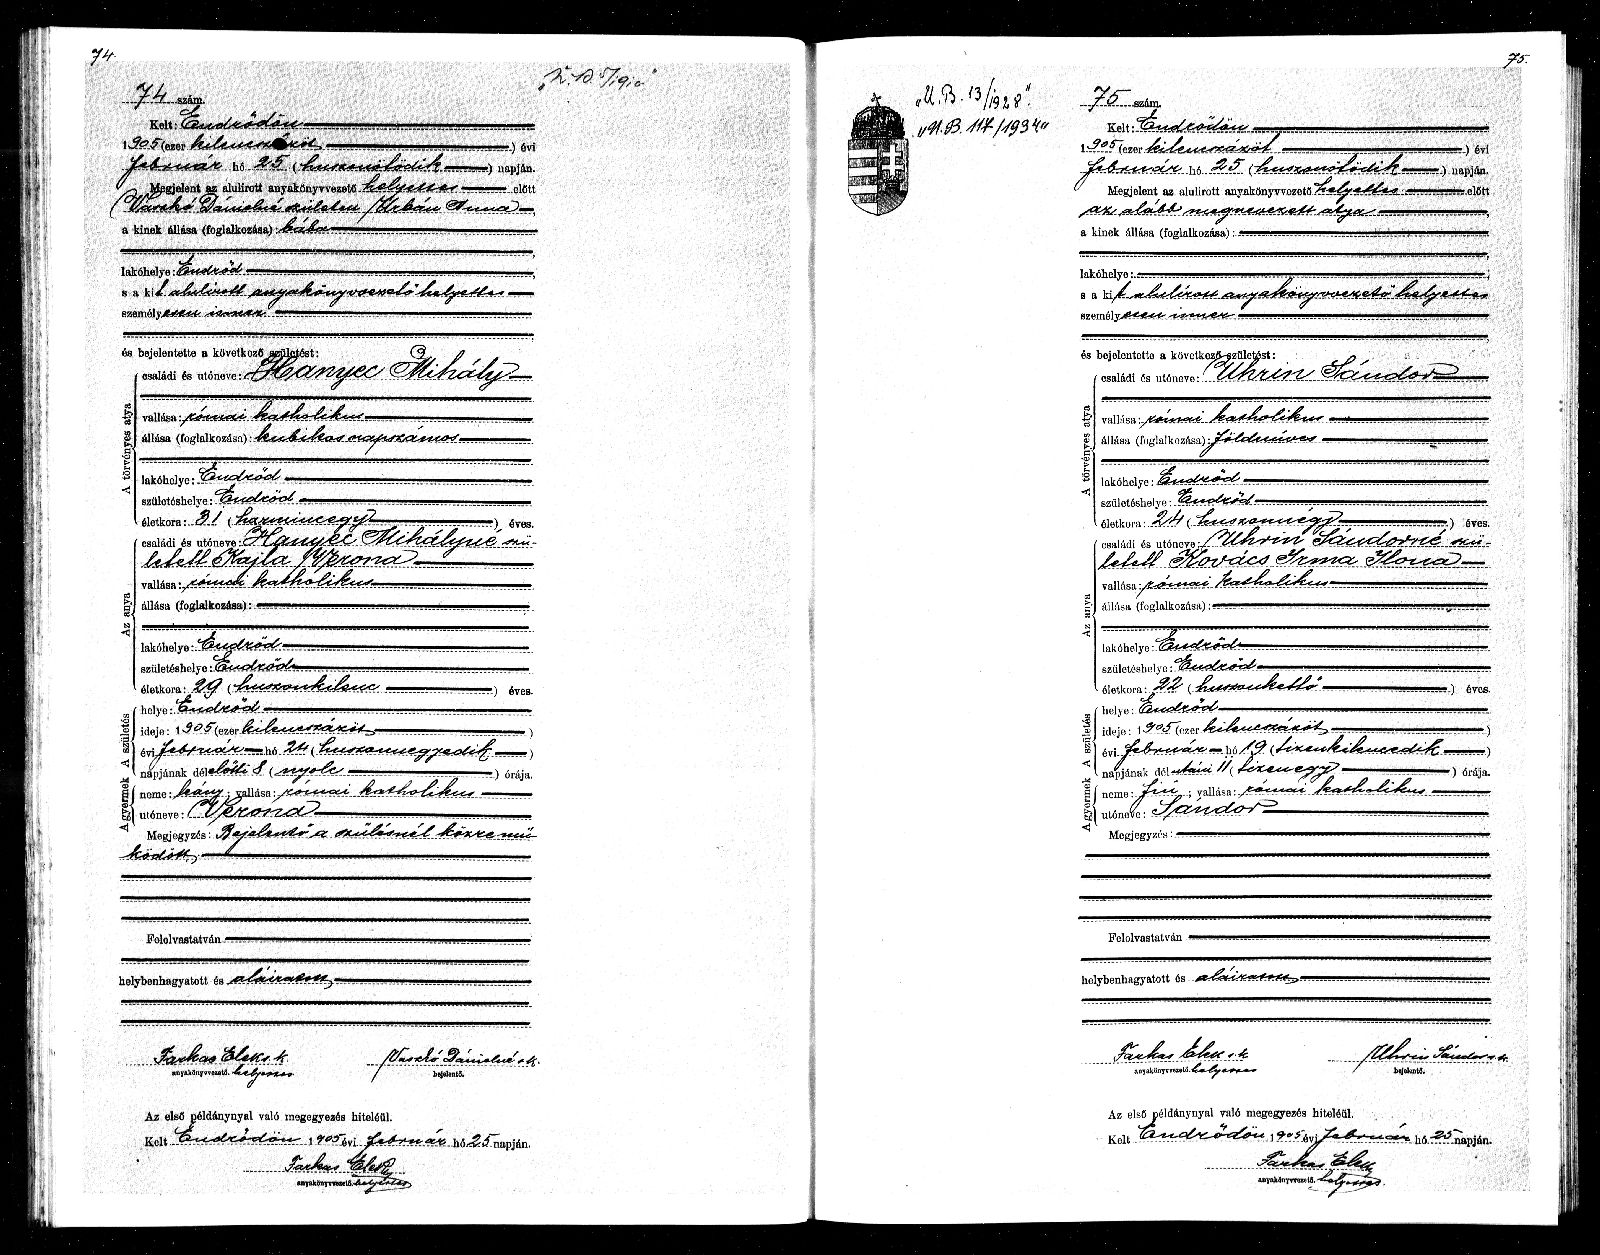 74.
74 szám.
Kelt: Endrődön
1905 (ezer kilenczszázöt) évi
február hó 25 (huszonötödik) napján.
Megjelent az alulirott anyakönyvvezető helyettes előtt
Vaszkó Dánielné született Urbán Anna,
a kinek állása (foglalkozása): bába
lakóhelye: Endrőd
s a kit alulirott anyakönyvvezető helyettes
személyesen ismer
és bejelentette a következő születést:
A törvényes atya
családi és utóneve: Hanyec Mihály
vallása: római katholikus
állása (foglalkozása): kubikos napszámos
lakóhelye: Endrőd
születéshelye: Endrőd
életkora: 31 (harminczegy) éves.
Az anya
családi és utóneve: Hanyec Mihályné szü-
letett Kajla Verona
vallása: római katholikus
állása (foglalkozása):
lakóhelye: Endrőd
születéshelye: Endrőd
életkora: 29 (huszonkilenc) éves.
A születés
helye: Endrőd
ideje: 1905 (ezer kilenczszázöt)
évi február hó 24 (huszonnegyedik)
napjának délelőtti 8 (nyolc) órája.
A gyermek
neme: leány; vallása: római katholikus
utóneve: Verona
Megjegyzés: Bejelentő a szülésnél közremű-
ködött.
Felolvastatván
helybenhagyatott és aláiratott
Farkas Elek s.k. Vaszkó Dánielné s.k.
anyakönyvvezető. helyettes bejelentő.
Az első példánynyal való megegyezés hiteléül.
Kelt Endrődön 1905 évi február hó 25 napján.
Farkas Elek
anyakönyvvezető. helyettes
75.
"U.B. 13/1928".
"U.B. 117/1934"
75 szám.
Kelt: Endrődön
1905 (ezer kilenczszázöt) évi
február hó 25 (huszonötödik) napján.
Megjelent az alulirott anyakönyvvezető helyettes előtt
az alább megnevezett atya
a kinek állása (foglalkozása):
lakóhelye:
s a kit alulirott anyakönyvvezető helyettes
személyesen ismer
és bejelentette a következő születést:
A törvényes atya
családi és utóneve: Uhrin Sándor
vallása: római katholikus
állása (foglalkozása): földmüves
lakóhelye: Endrőd
születéshelye: Endrőd
életkora: 24 (huszonnégy) éves.
Az anya
családi és utóneve: Uhrin Sándorné szü-
letett Kovács Irma Ilona
vallása: római katholikus
állása (foglalkozása):
lakóhelye: Endrőd
születéshelye: Endrőd
életkora: 22 (huszonkettő) éves.
A születés
helye: Endrőd
ideje: 1905 (ezer kilenczszázöt)
évi február hó 19 (tizenkilencedik)
napjának délutáni 11 (tizenegy) órája.
A gyermek
neme: fiú; vallása: római katholikus
utóneve: Sándor
Megjegyzés:
Felolvastatván
helybenhagyatott és aláiratott
Farkas Elek s.k. Uhrin Sándor s.k.
anyakönyvvezető. helyettes bejelentő.
Az első példánynyal való megegyezés hiteléül.
Kelt Endrődön 1905 évi február hó 25 napján.
Farkas Elek
anyakönyvvezető. helyettes